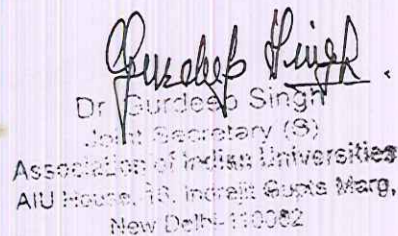 Gurdeep Singh.
Dr Gurdeep Singh
Joint Secretary (S)
Association of Indian Universities
AIU House, 16, Indrajit Gupta Marg,
New Delhi-110002